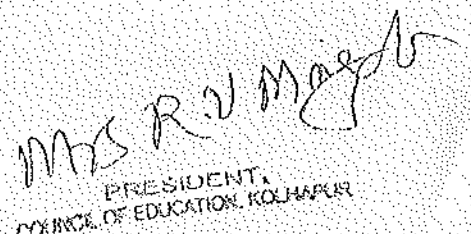 Mrs R.V
PRESIDENT,
COUNCIL OF EDUCATION, KOLHAPUR